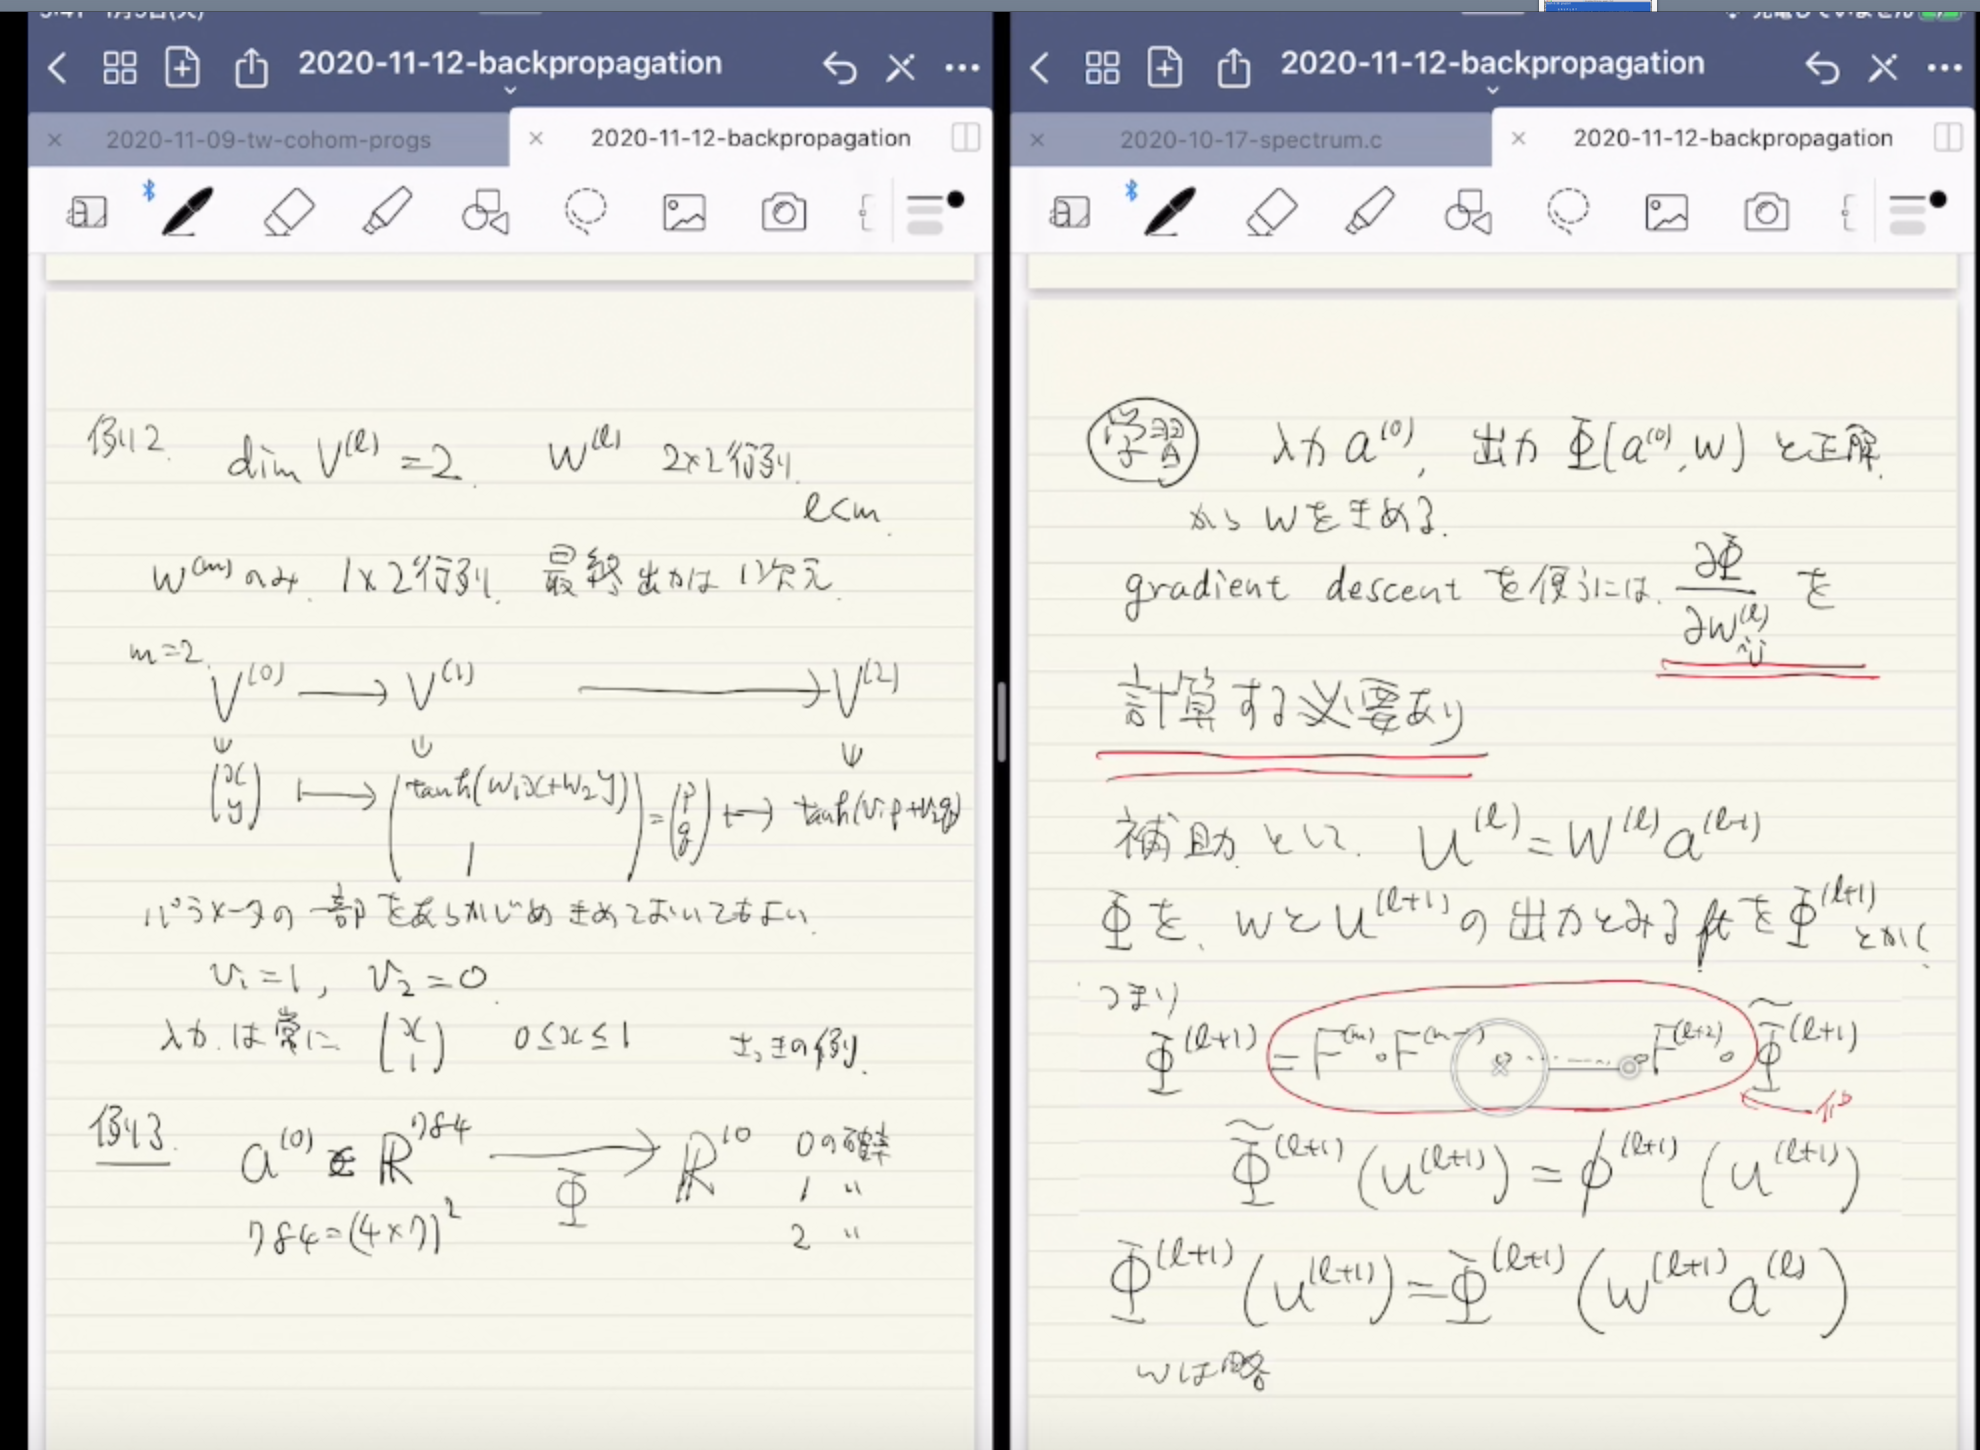 2020-11-12-backpropagation
2020-11-09-tw-cohom-progs
2020-11-12-backpropagation
例2. dim V^(l) = 2. W^(l) 2×2行列.
l<m.
W^(m)のみ. 1×2行列. 最終出力は1次元.
m=2.
V^(0) → V^(1) → V^(2)
(x y) ↦ (tanh(w₁x+w₂y) 1) = (p q) ↦ tanh(v₁p+v₂q)
パラメータの一部をあらかじめきめておいてもよい.
v₁=1, v₂=0.
入力は常に (x 1) 0≤x≤1 さっきの例.
例3. a^(0) ∈ R^784 → R^10 0の確率
Φ 1 〃
784=(4×7)^2 2 〃
2020-11-12-backpropagation
2020-10-17-spectrum.c
2020-11-12-backpropagation
学習 入力 a^(0), 出力 Φ(a^(0), w) と正解
から wをきめる.
gradient descent を使うには. ∂Φ/∂w_ij^(l) を
計算する必要あり
補助として. u^(l) = W^(l) a^(l-1)
Φを, wとu^(l+1)の出力とみる ftをΦ^(l+1)とかく
つまり
Φ^(l+1) = F^(m)∘F^(m-1) ∘ ---- ∘F^(l+2)∘ Φ̃^(l+1)
Φ̃^(l+1) (u^(l+1)) = φ^(l+1) (u^(l+1))
Φ^(l+1) (u^(l+1)) = Φ^(l+1) (w^(l+1) a^(l))
wは略